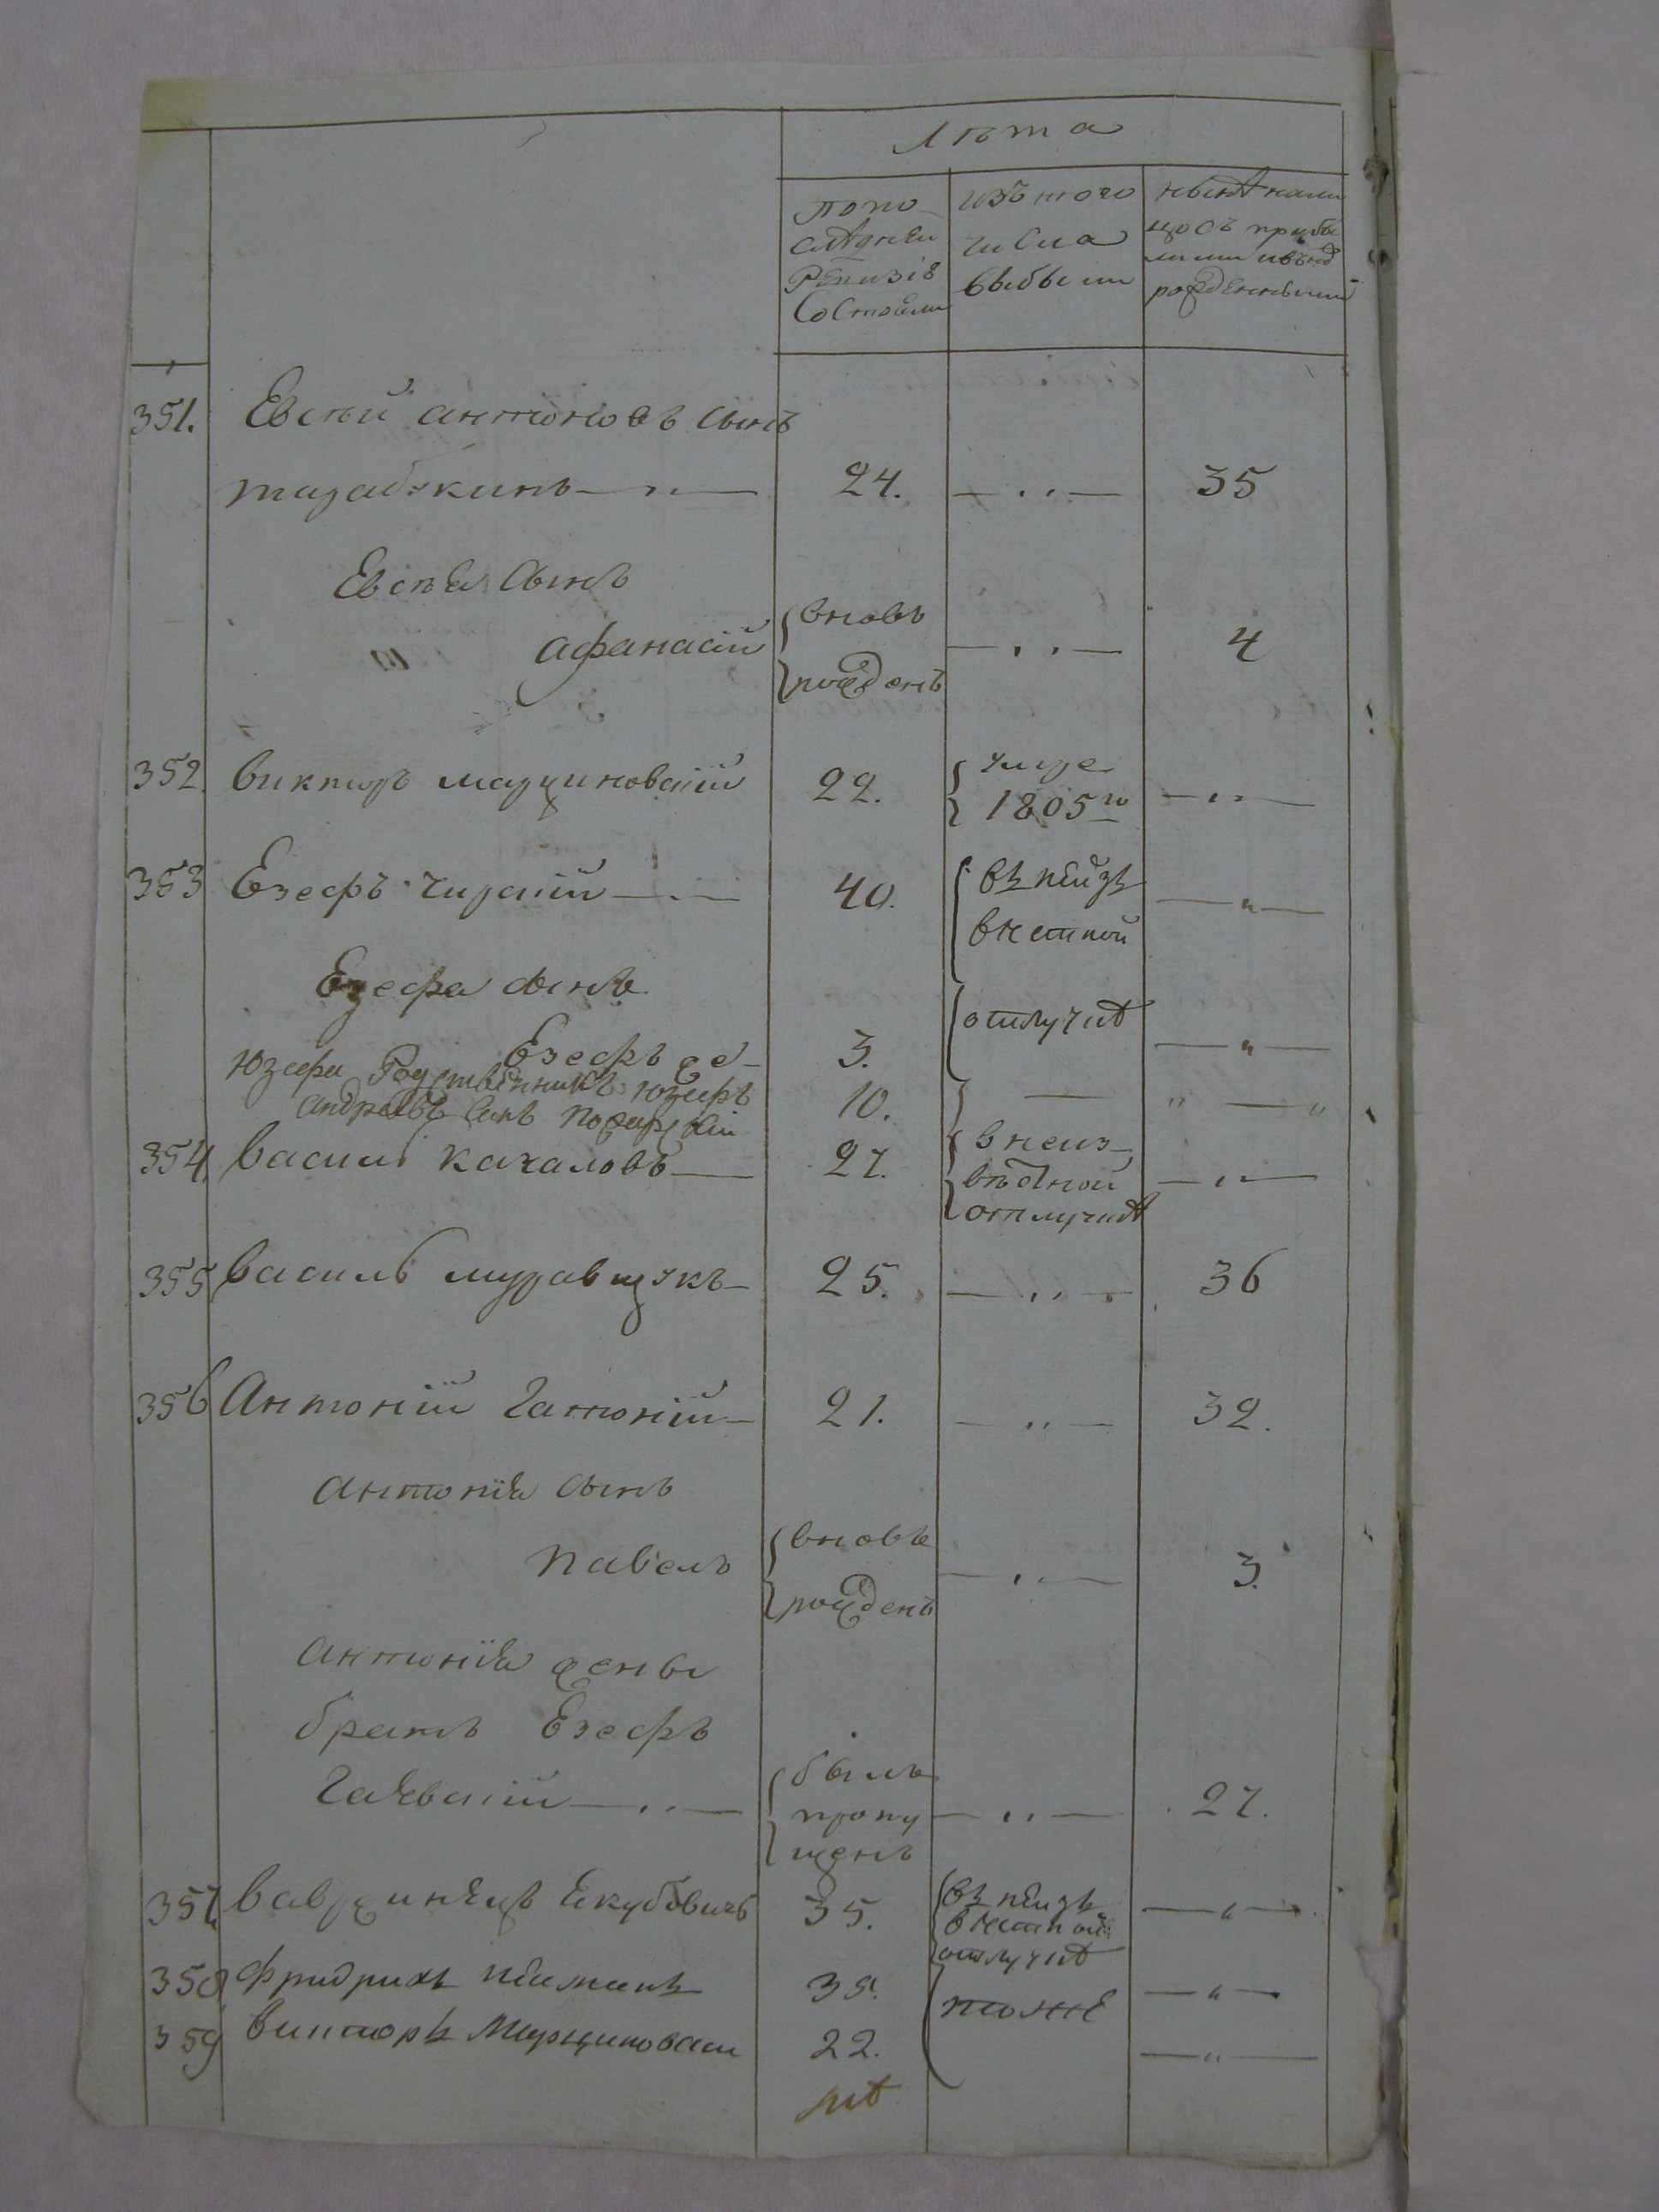 Лѣта
по по-
слѣдней
Ревизіѣ
Состояли
изъ того
числа
выбыли
нынѣ нали
цосъ прибы
лыми и внов
рожденными
351. Евсѣй антоновъ сынъ
24. 35
Евсѣя сынъ
афанасій вновь рожденъ 4
352 викторъ марциновскій 22. умре 1805го
353 Езефъ чирскій 40. въ неизъ
вестной
Езефа сынъ
Езефъ же 3. отлучкѣ
Юзефа Родственникъ юзефъ
андреевъ сынъ 10.
354 василь качаловъ 27. в неиз-
вѣстной
отлучкѣ
355 василь муравщикъ 25. 36
356 Антоній Гатоній 21. 32.
антонія сынъ
павелъ вновь рожденъ 3.
антонія жены
братъ Езефъ
былъ
пропу
щенъ
27.
357 вавржинецъ Якубовичъ 35. въ неизъ
вестной
отлучкѣ
358 фридрихъ 35. тоже
359 викторъ Марциновски 22.
лѣт